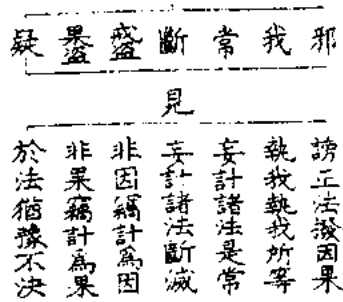 邪 我 常 斷 戒盜 果盜 疑
見
謗正法潑因果
執我執我所等
妄計諸法是常
妄計諸法斷滅
非因竊計為因
非果竊計為果
於法猶豫不决